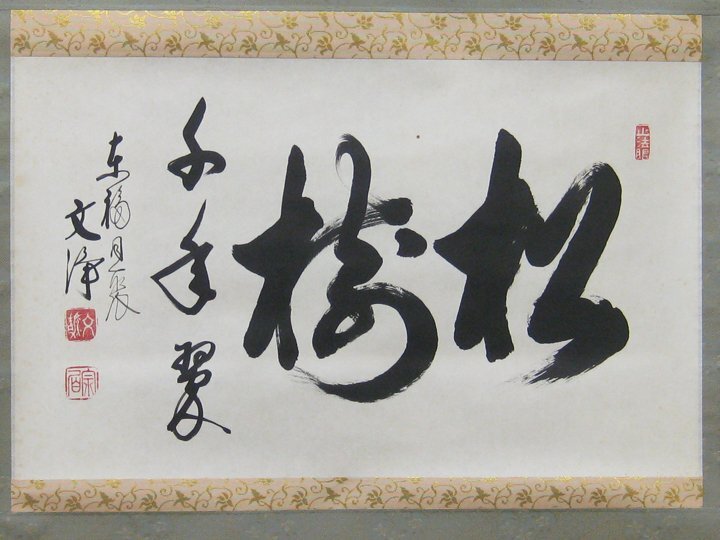 松樹
千年翠
東福同聚
文浄